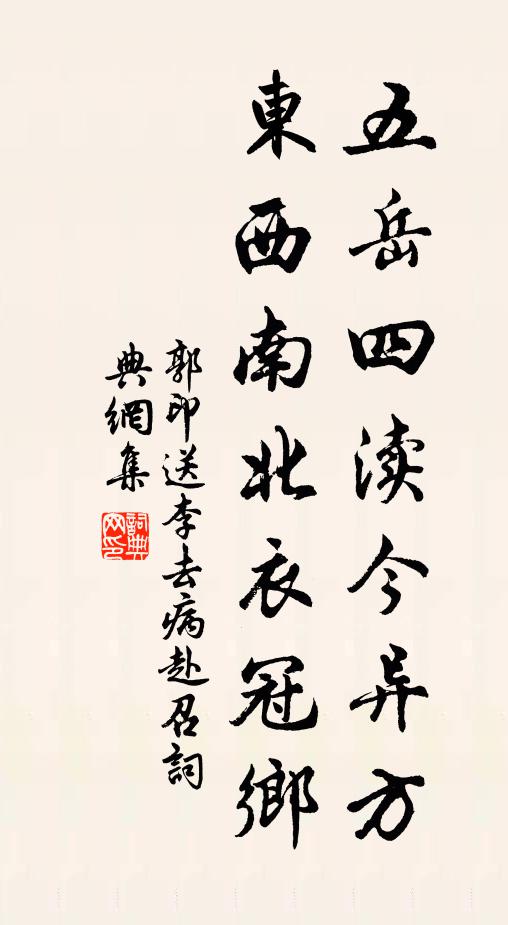 五岳四渎今异方
東西南北衣冠鄉
郭印送李去病赴召詞
典網集
詞典
网印